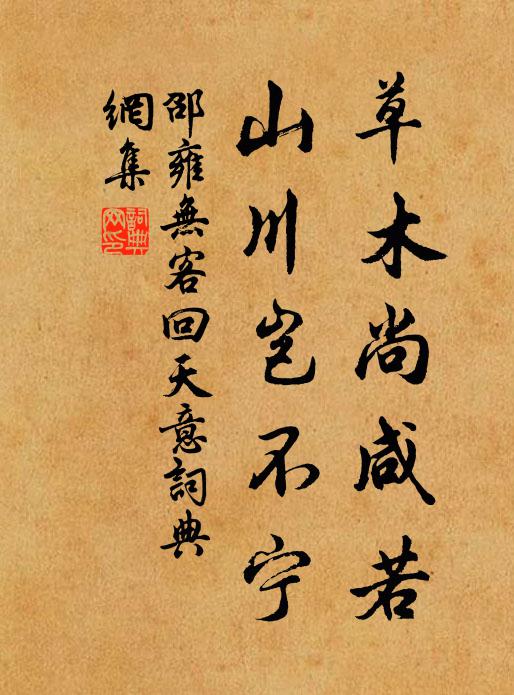 草木尚咸若
山川岂不宁
邵雍無客回天意詞典
網集
詞典
网印